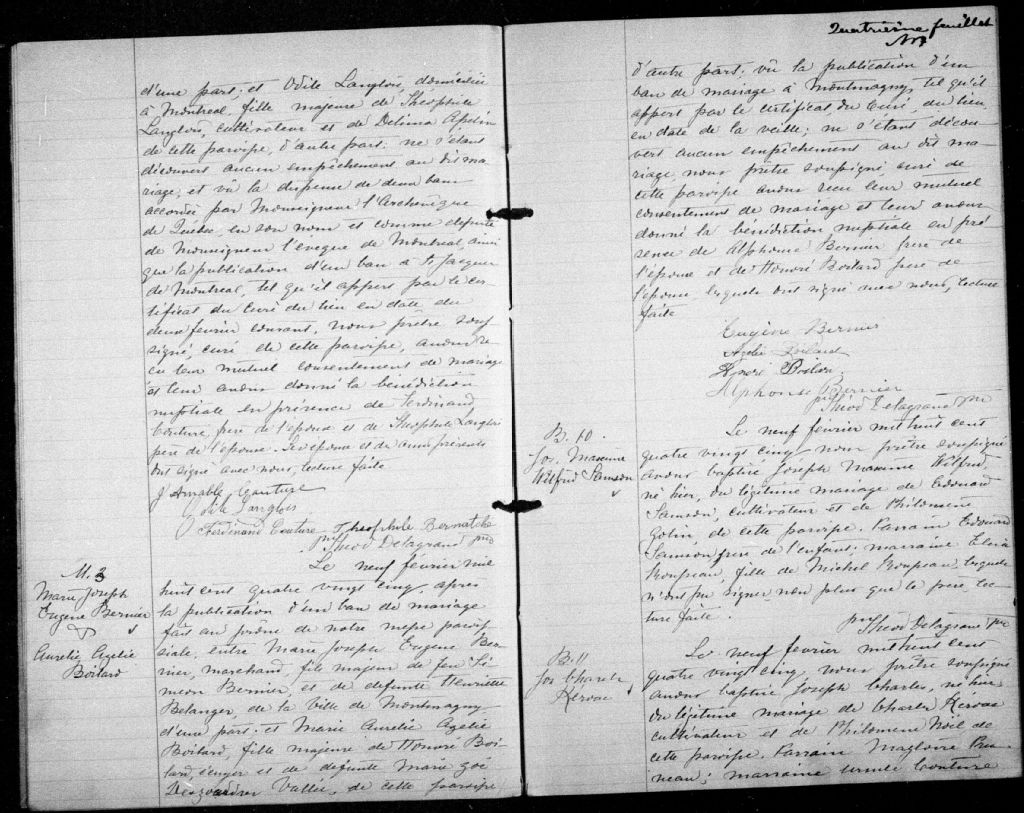 d'une part; et Odile Langlois, domiciliée
à Montréal, fille majeure de Théophile
Langlois, cultivateur et de Delima
de cette paroisse, d'autre part: ne s'étant
découvert aucun empêchement au dit ma-
riage; et vu la dispense de deux bans
accordée par Monseigneur l'Archevêque
de Québec, en son nom et comme député
de Monseigneur l'évêque de Montréal, ainsi
que la publication d'un ban à St Jacques
de Montreal, tel qu'il appert par le cer-
tificat du Curé du lieu en date du
deux février courant, nous prêtre sous-
signé, curé de cette paroisse, avons re-
çu leur mutuel consentement de mariage
et leur avons donné la bénédiction
nuptiale en présence de Ferdinand
Couture, père de l'époux et de Théophile Langlois
père de l'épouse. Les époux et
ont signé avec nous, lecture faite
J Amable Couture
Odile Langlois
Ferdinand Couture Théophile Bernatche
Théod Delagrave ptre
M. 3
Marie Joseph
Eugène Bernier
&
Aurelie Azelie
Boilard
Le neuf février mil
huit cent quatre vingt cinq, après
la publication d'un ban de mariage
fait au prône de notre messe parois-
siale, entre Marie Joseph Eugène Ber-
nier, marchand, fils majeur de feu Si-
meon Bernier, et de defunte Henriette
Belanger, de la ville de Montmagny
d'une part; et Marie Aurelie Azelie
Boilard, fille majeure de Honoré Boi-
lard, et de defunte Marie Zoé
Vallée, de cette paroisse
Quatrième feuillet
d'autre part; vu la publication d'un
ban de mariage à Montmagny, tel qu'il
appert par le certificat du Curé, du lieu,
en date de la veille; ne s'étant décou-
vert aucun empêchement au dit ma-
riage, nous prêtre soussigné, curé de
cette paroisse avons reçu leur mutuel
consentement de mariage et leur avons
donné la bénédiction nuptiale en pré-
sence de Alphonse Bernier frère de
l'époux et de Honoré Boilard père de
l'épouse, lesquels ont signé avec nous, lecture
faite
Eugène Bernier
Azelie Boilard
Honoré Boilard
Alphonse Bernier
Théod Delagrave ptre
B. 10.
Jos. Maxime
Wilfrid Samson
Le neuf février mil huit cent
quatre vingt cinq, nous prêtre soussigné
avons baptisé Joseph Maxime Wilfrid,
né hier, du légitime mariage de Edouard
Samson cultivateur et de Philomène
de cette paroisse. Parrain Edouard
Samson frère de l'enfant; marraine
fille de Michel lesquels
n'ont pu signer, non plus que le père lec-
ture faite.
Théod Delagrave ptre
B. 11
Jos Charles
Keroac
Le neuf février mil huit cent
quatre vingt cinq, nous prêtre soussigné
avons baptisé Joseph Charles, né hier
du légitime mariage de Charles Keroac
cultivateur et de Philomène Noël de
cette paroisse. Parrain Magloire Bru-
neau; marraine Couture